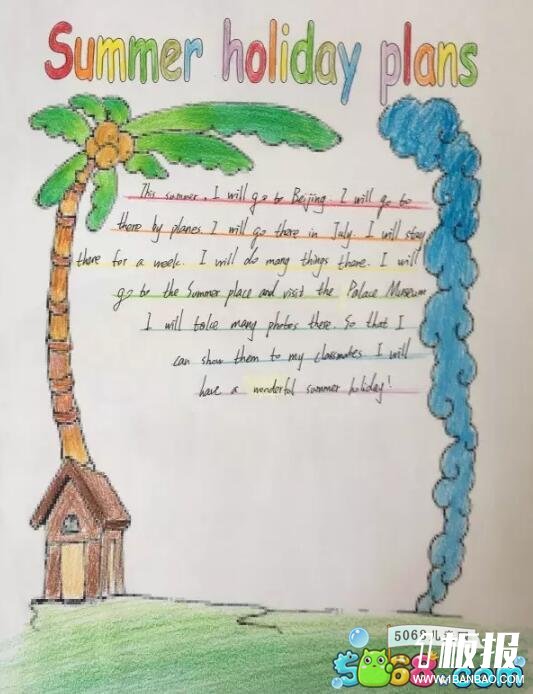 Summer holiday plans
This summer, I will go to Beijing. I will go to
there by planes. I will go there in July. I will stay
there for a week. I will do many things there. I will
go to the Summer place and visit the Palace Museum
I will take many photos there. So that I
can show them to my classmates. I will
have a wonderful summer holiday!
5068儿
板报
5068.com
WWW.41BANBAO.COM